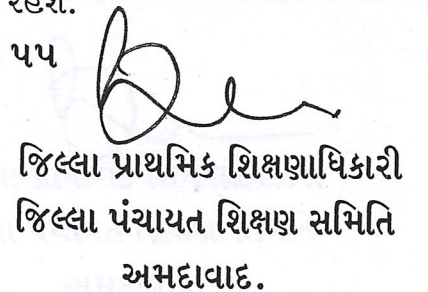 રહેશે.
પપ
જિલ્લા પ્રાથમિક શિક્ષણાધિકારી
જિલ્લા પંચાયત શિક્ષણ સમિતિ
અમદાવાદ.